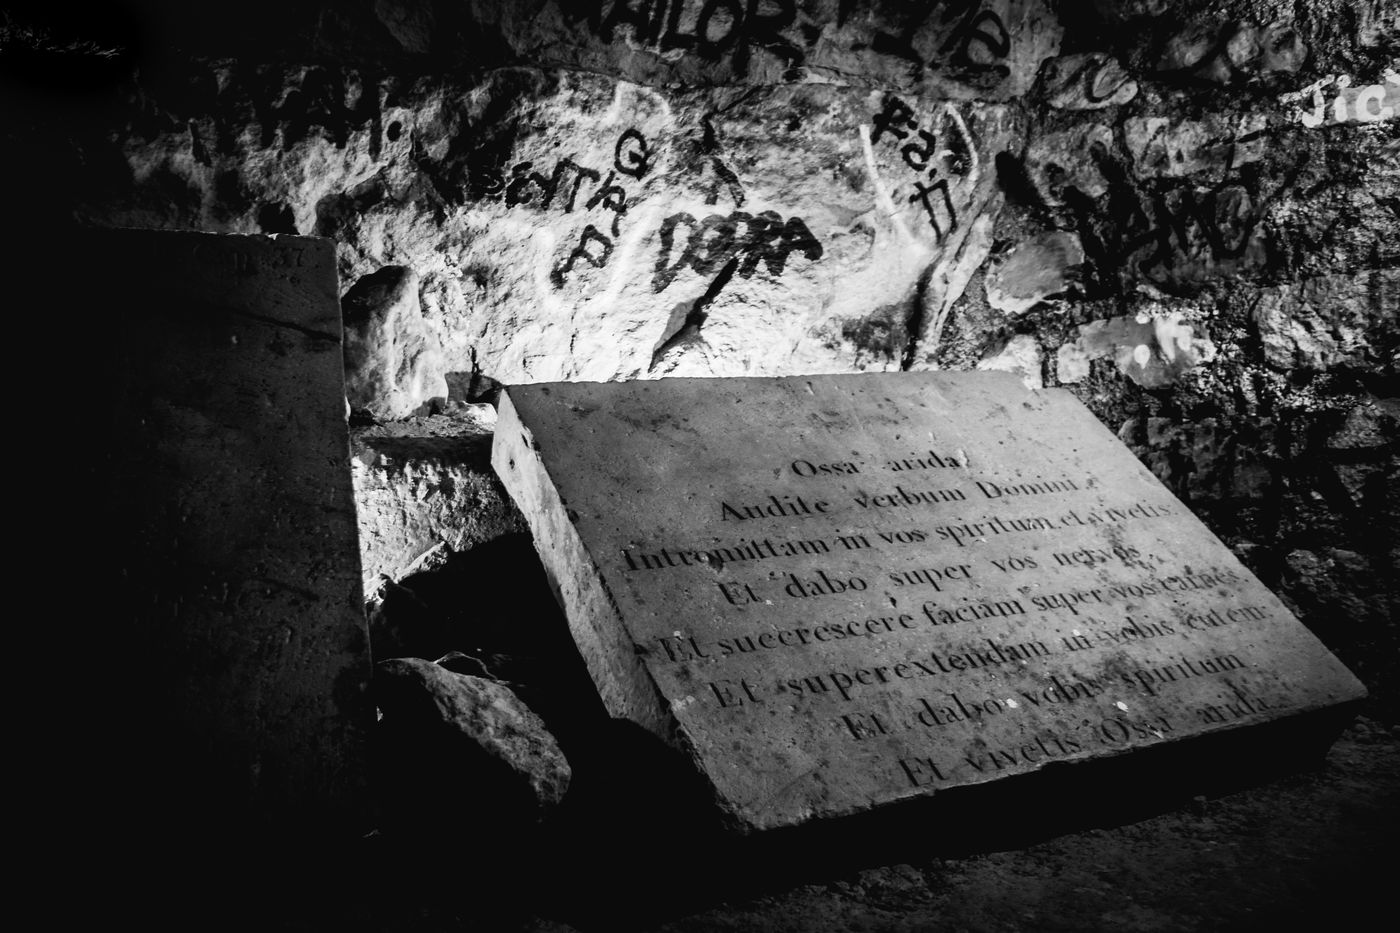 TAILOR
DOPRA
Tic
37
Ossa arida
Audite verbum Domini
Intromittam in vos spiritum et vivetis
Et dabo super vos nervos
Et succrescere faciam super vos carnes
Et superextendam in vobis cutem
Et dabo vobis spiritum
Et vivetis Ossa arida